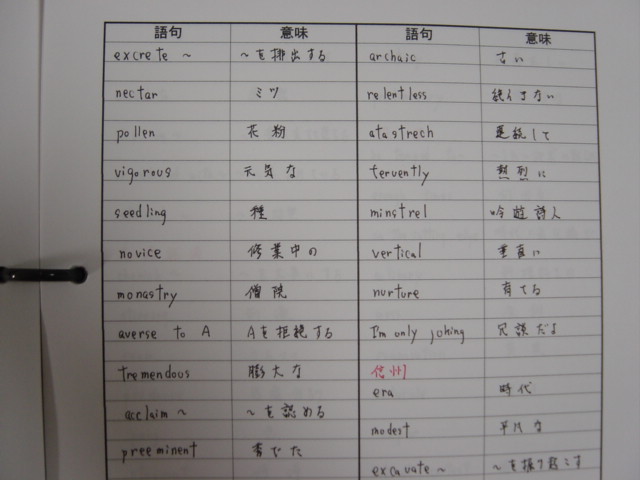 語句 意味 語句 意味
excrete ～ ～を排出する archaic 古い
nectar ミツ relentless 絶えない
pollen 花粉 at a strech 連続して
vigorous 元気な tervently 熱烈に
seedling 種 minstrel 吟遊詩人
novice 修業中の vertical 垂直に
monastry 僧院 nurture 育てる
averse to A Aを拒絶する I'm only joking 冗談だよ
tremendous 膨大な 信州
era 時代
acclaim ～ ～を認める
modest 平凡な
preeminent 秀でた
excavate ～ ～を掘り起こす